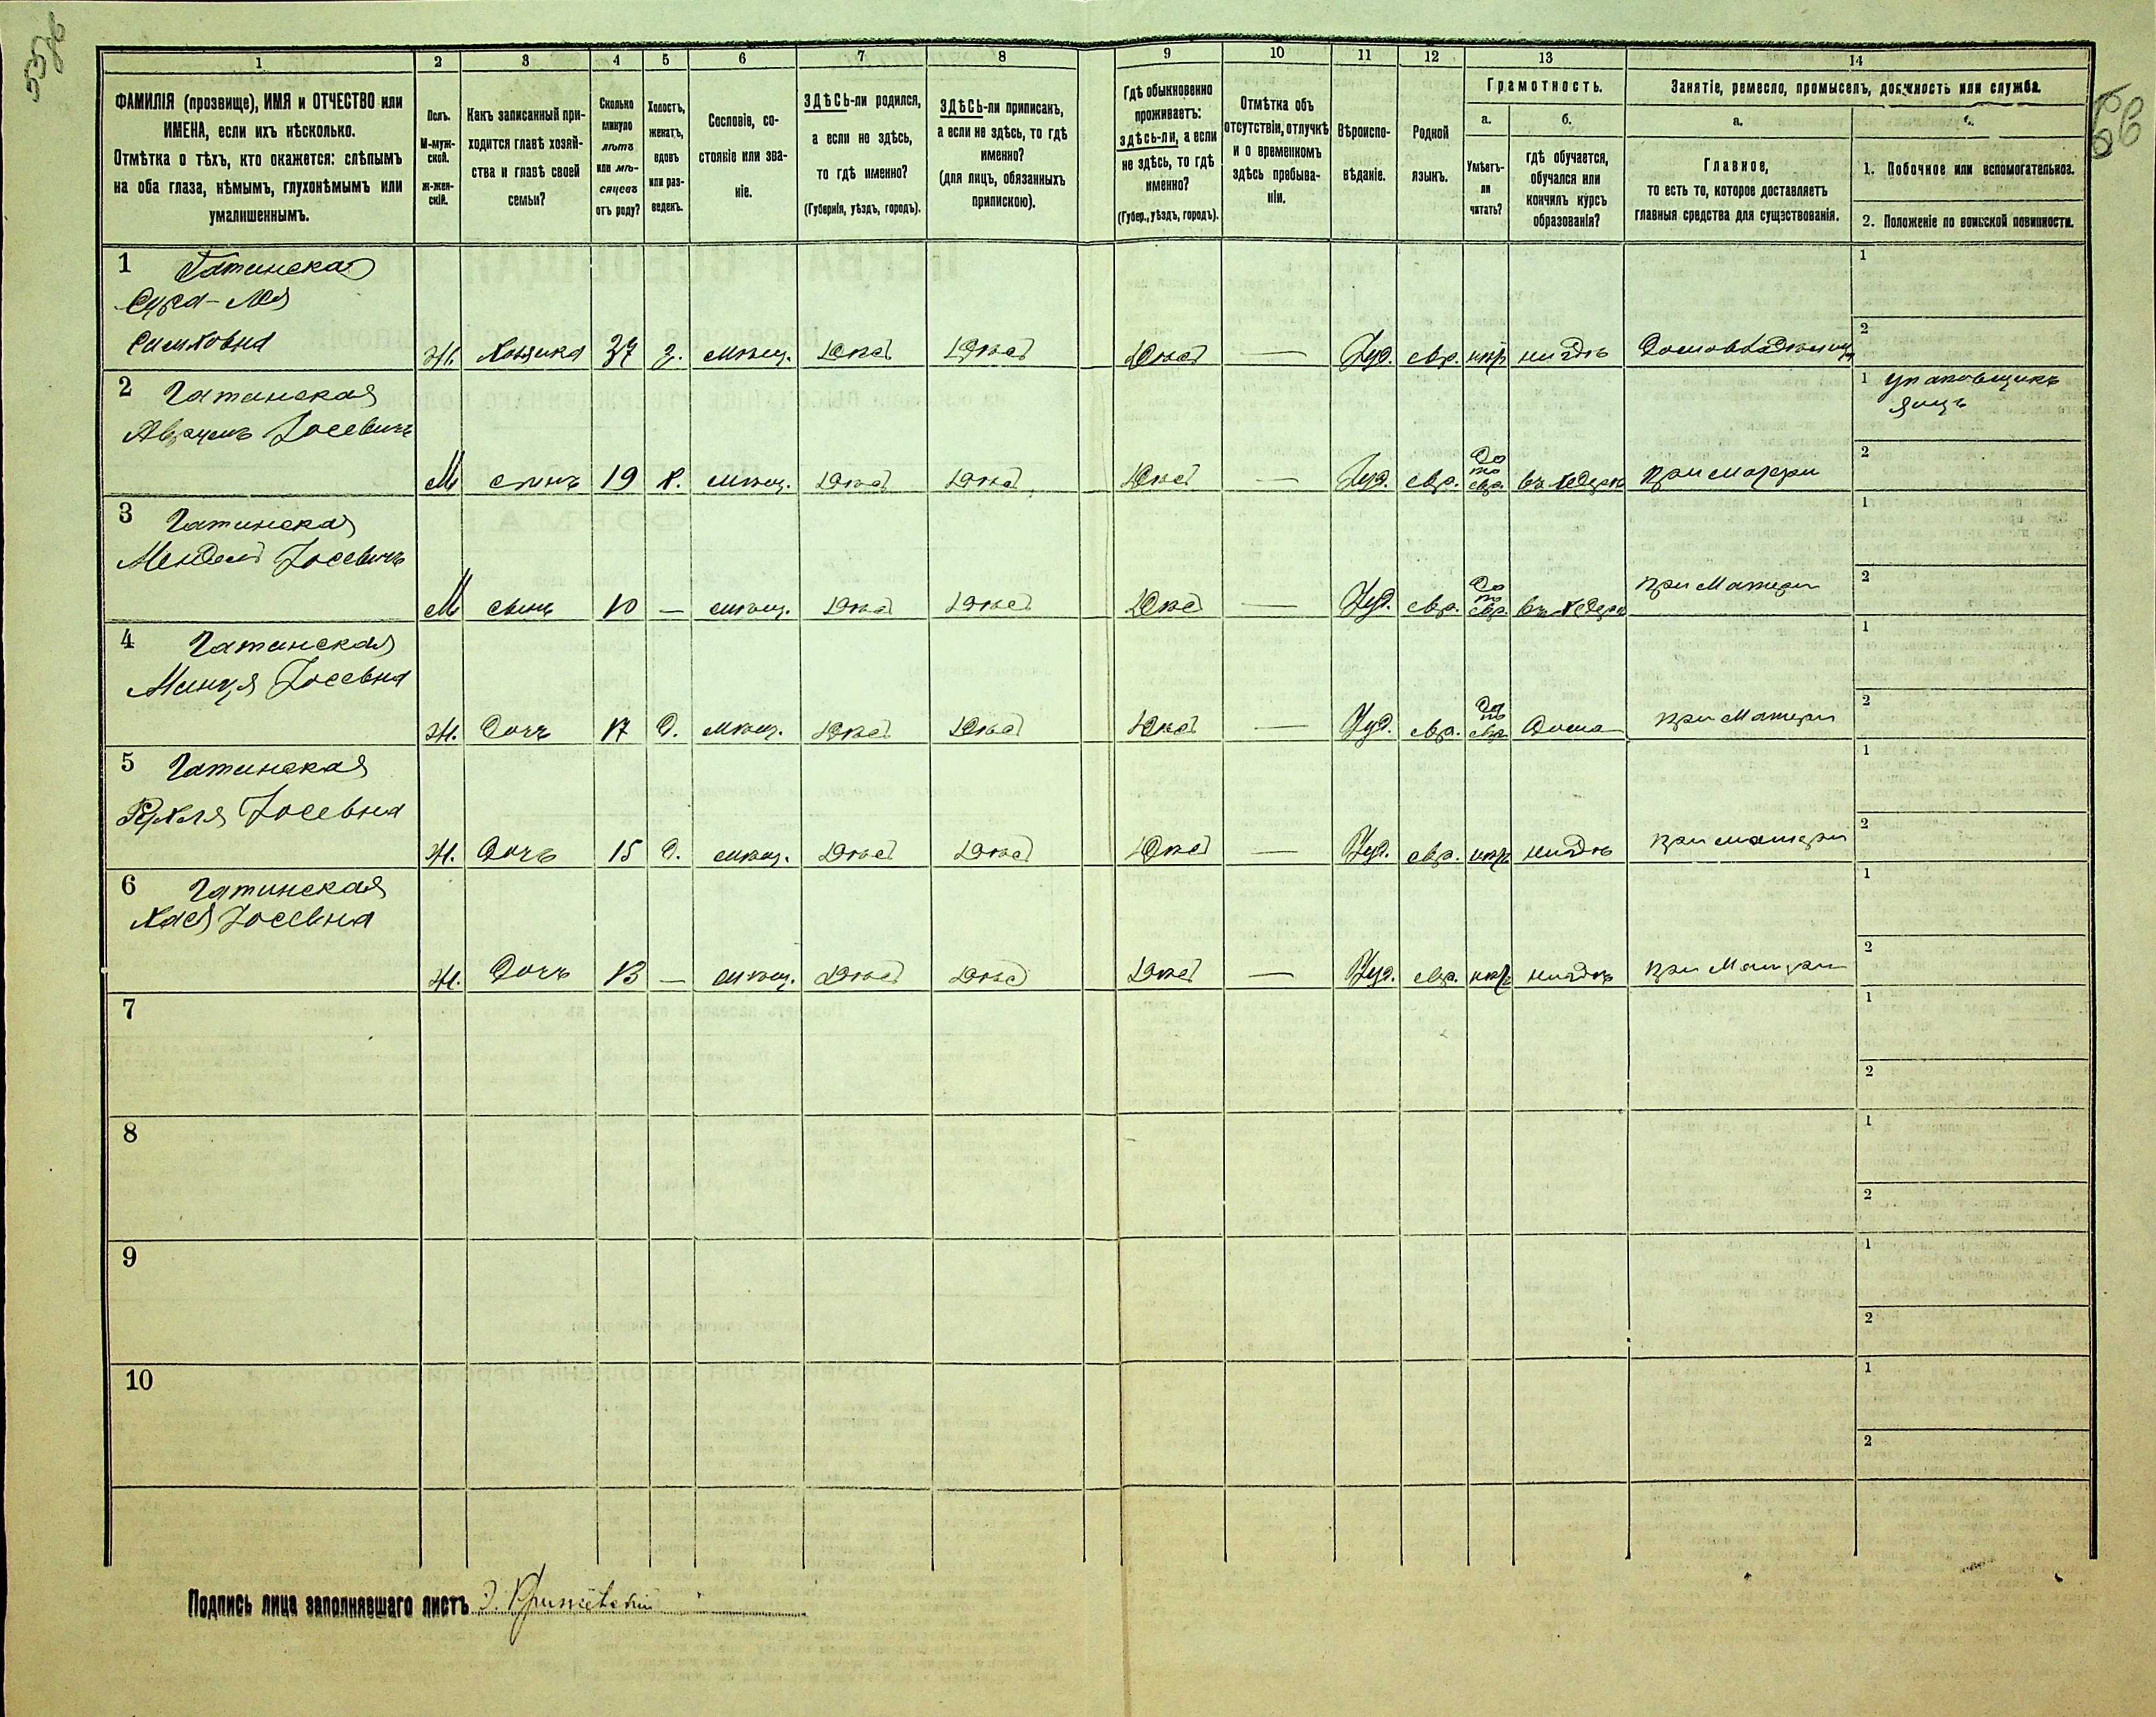 1 2 3 4 5 6 7 8 9 10 11 12 13 14
ФАМИЛІЯ (прозвище), ИМЯ и ОТЧЕСТВО или
ИМЕНА, если ихъ нѣсколько.
Отмѣтка о тѣхъ, кто окажется: слѣпымъ
на оба глаза, нѣмымъ, глухонѣмымъ или
умалишеннымъ.
Полъ.
М-муж-
ской.
ж-жен-
скій.
Какъ записанный при-
ходится главѣ хозяй-
ства и главѣ своей
семьи?
Сколько
минуло
лѣтъ
или мѣ-
сяцевъ
отъ роду?
Холостъ,
женатъ,
вдовъ
или раз-
веденъ.
Сословіе, со-
стояніе или зва-
ніе.
ЗДѢСЬ-ли родился,
а если не здѣсь,
то гдѣ именно?
(Губернія, уѣздъ, городъ).
ЗДѢСЬ-ли приписанъ,
а если не здѣсь, то гдѣ
именно?
(для лицъ, обязанныхъ
припискою).
Гдѣ обыкновенно
проживаетъ:
здѣсь-ли, а если
не здѣсь, то гдѣ
именно?
(Губер., уѣздъ, городъ).
Отмѣтка объ
отсутствіи, отлучкѣ
и о временномъ
здѣсь пребыва-
ніи.
Вѣроиспо-
вѣданіе.
Родной
языкъ.
Грамотность.
а.
Умѣетъ-
ли
читать?
б.
гдѣ обучается,
обучался или
кончилъ курсъ
образованія?
Занятіе, ремесло, промыселъ, должность или служба.
а.
Главное,
то есть то, которое доставляетъ
главныя средства для существованія.
1. Побочное или вспомогательное.
2. Положеніе по воинской повинности.
1 Гатинская
Сура-
Ж. 37 мѣщ. здѣсь здѣсь здѣсь — Іуд. евр. нѣтъ нигдѣ Домовладѣлица
1
2
2 Гатинская
Абрамъ Іосевичъ
М сынъ 19 х. мѣщ. здѣсь здѣсь здѣсь — Іуд. евр. да по евр. въ хедерѣ при матери
1 упаковщикъ
яицъ
2
3 Гатинская
Мендель Іосевичъ
М сынъ 10 — мѣщ. здѣсь здѣсь здѣсь — Іуд. евр. да по евр. въ хедерѣ при матери
1
2
4 Гатинская
Іосевна
Ж. дочь 17 д. мѣщ. здѣсь здѣсь здѣсь — Іуд. евр. да по евр. дома при матери
1
2
5 Гатинская
Рухля Іосевна
Ж. дочь 15 д. мѣщ. здѣсь здѣсь здѣсь — Іуд. евр. нѣтъ нигдѣ при матери
1
2
6 Гатинская
Хася Іосевна
Ж. дочь 13 — мѣщ. здѣсь здѣсь здѣсь — Іуд. евр. нѣтъ нигдѣ при матери
1
2
7
1
2
8
1
2
9
1
2
10
1
2
Подпись лица заполнявшаго листъ